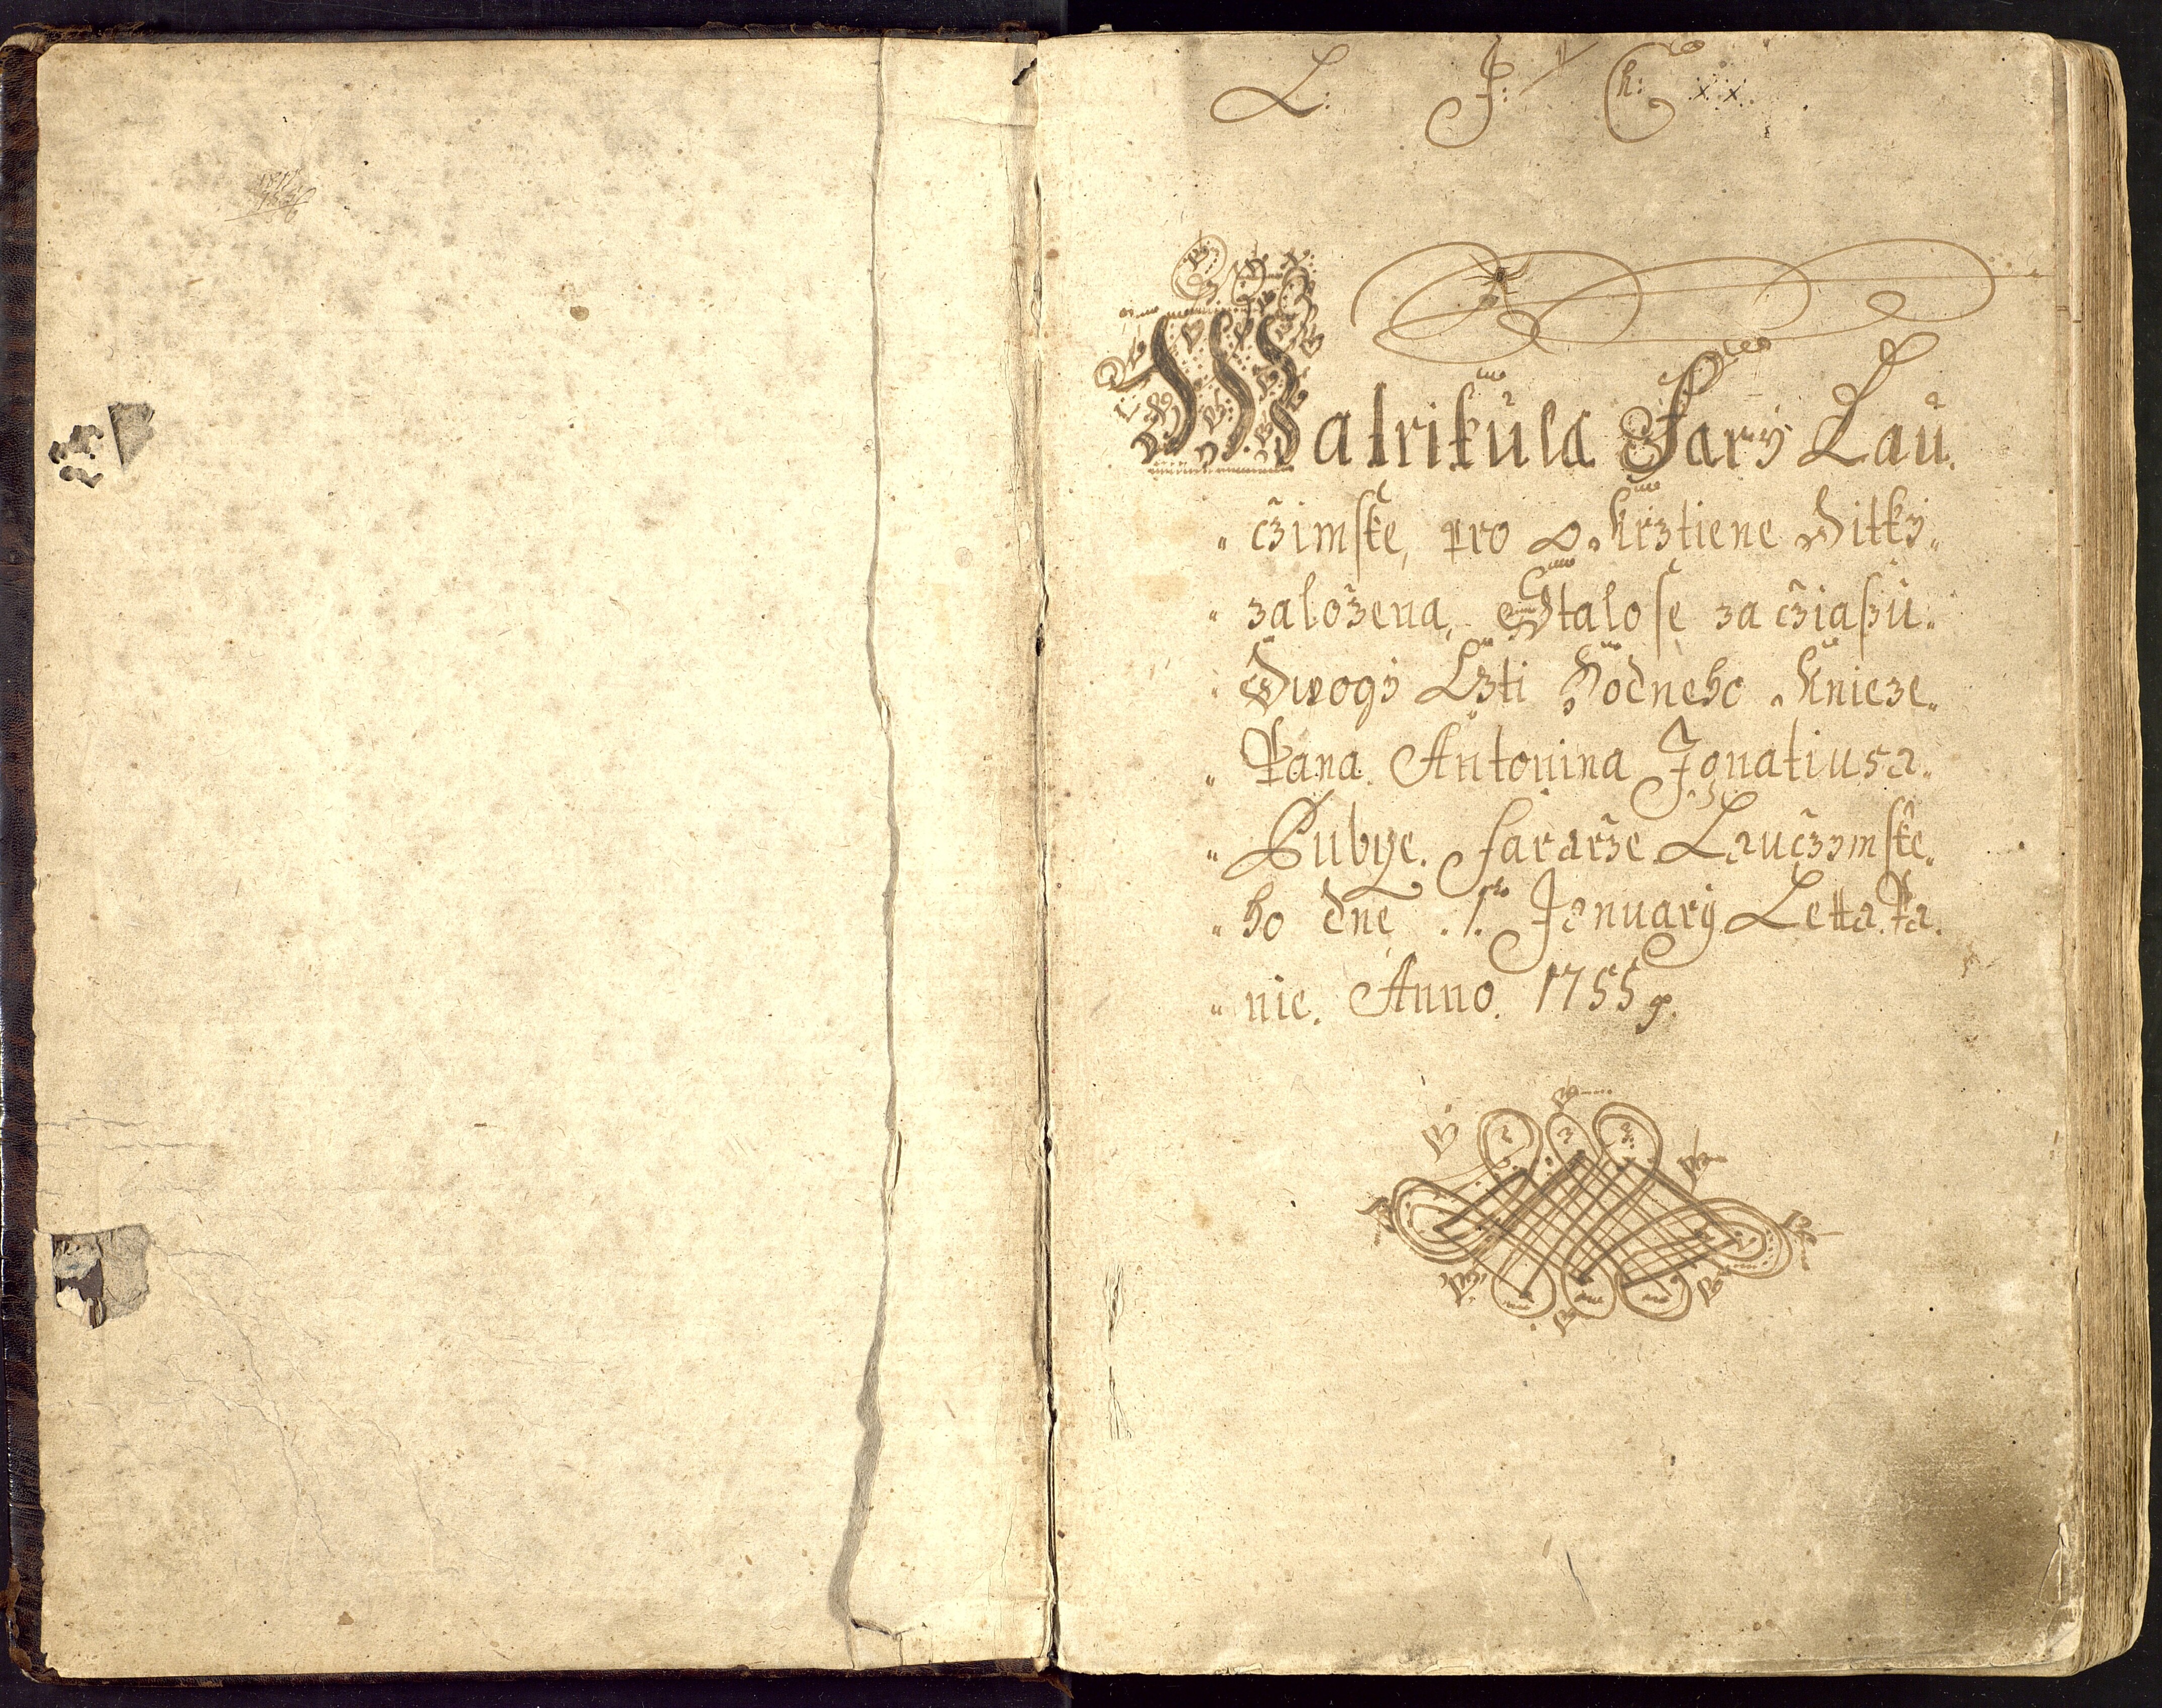 L: J: Ch: x x
Matrikula Fary Lau.
cžimske, pro okrztiene Ditky
založena, Stalo se za cžiaßu
Dwogy Czti Hodneho Knieze
Pana Antonina Ignatiusa
fararže Laucžymske.
ho dne 1. January Letta Pa.
nie. Anno. 1755